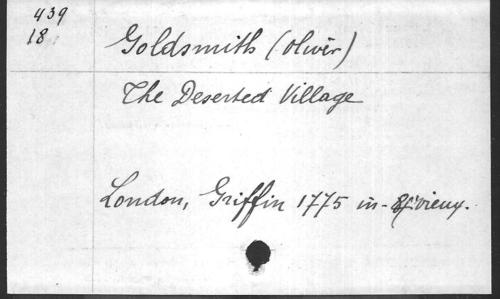 439
18
Goldsmith (Oliver)
The Deserted Village
London, Griffin 1775 in-